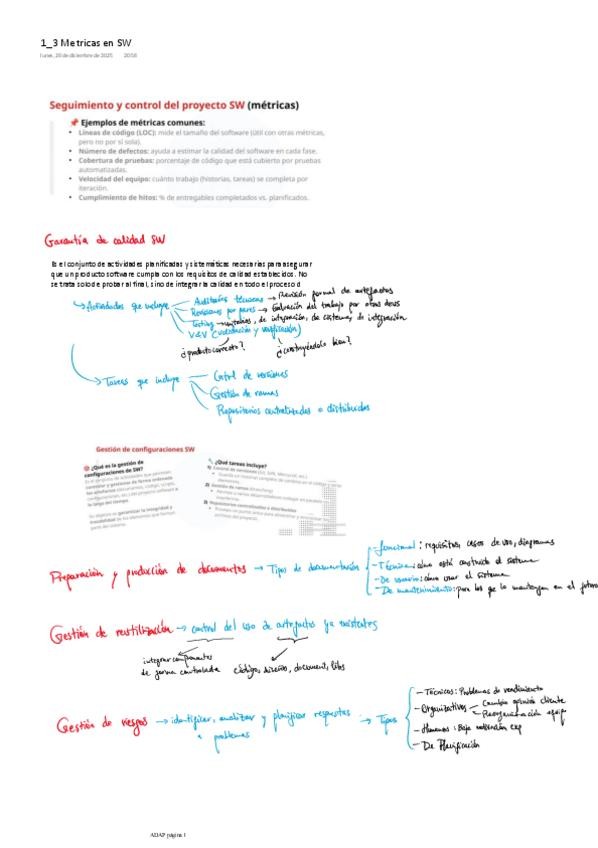 1_3 Metricas en SW
lunes, 29 de diciembre de 2025 20:58
Seguimiento y control del proyecto SW (métricas)
📌 Ejemplos de métricas comunes:
• Líneas de código (LOC): mide el tamaño del software (útil con otras métricas,
pero no por sí sola).
• Número de defectos: ayuda a estimar la calidad del software en cada fase.
• Cobertura de pruebas: porcentaje de código que está cubierto por pruebas
automatizadas.
• Velocidad del equipo: cuánto trabajo (historias, tareas) se completa por
iteración.
• Cumplimiento de hitos: % de entregables completados vs. planificados.
Garantía de calidad SW
Es el conjunto de actividades planificadas y sistemáticas necesarias para asegurar
que un producto software cumpla con los requisitos de calidad establecidos. No
se trata solo de probar al final, sino de integrar la calidad en todo el proceso d
Actividades que incluye
Auditorías técnicas → Revisión formal de artefactos
Revisiones por pares → Evaluación del trabajo por otros devs
Testing → unitarias, de integración, de sistema, de integración
V&V (validación y verificación)
¿producto correcto? ¿construyéndolo bien?
Tareas que incluye
Cntrl de versiones
Gestión de ramas
Repositorios centralizados o distribuidos
Gestión de configuraciones SW
¿Qué es la gestión de
configuraciones de SW?
¿Qué tareas incluye?
Preparación y producción de documentos → Tipos de documentación
- funcional: requisitos, casos de uso, diagramas
- Técnica: cómo está construido el sistema
- De usuario: cómo usar el sistema
- De mantenimiento: para los que lo mantengan en el futuro
Gestión de reutilización → control del uso de artefactos ya existentes
integrar componentes
de forma controlada
código, diseños, document, libs
Gestión de riesgos → identificar, analizar y planificar respuestas
a problemas
→ Tipos
- Técnicos: Problemas de rendimiento
- Organizativos
Cambio opinión cliente
Reorganización equipo
- Humanos: Baja motivación exp
- De Planificación
ADAP página 1